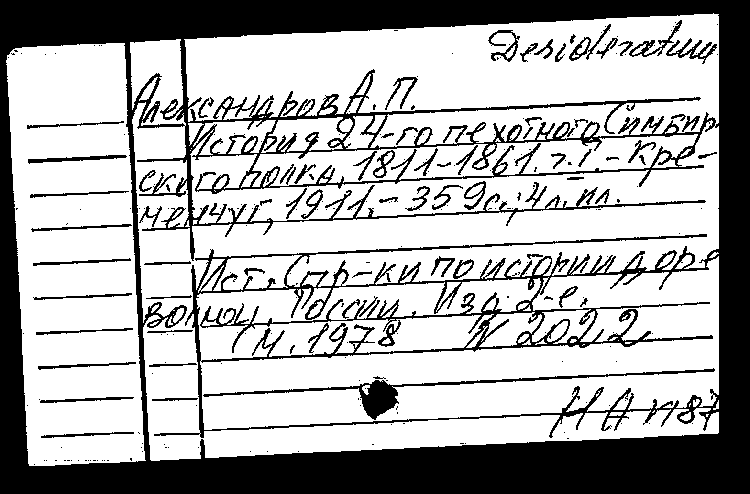 Desiderata
Александров А.П.
История 24-го пехотного Симбир-
ского полка, 1811-1861. т.I. - Кре-
менчуг, 1911. - 359с.; 4л.ил.
Ист. Спр-ки по истории доре
волюц. России. Изд. 2-е.
М. 1978 N 2022